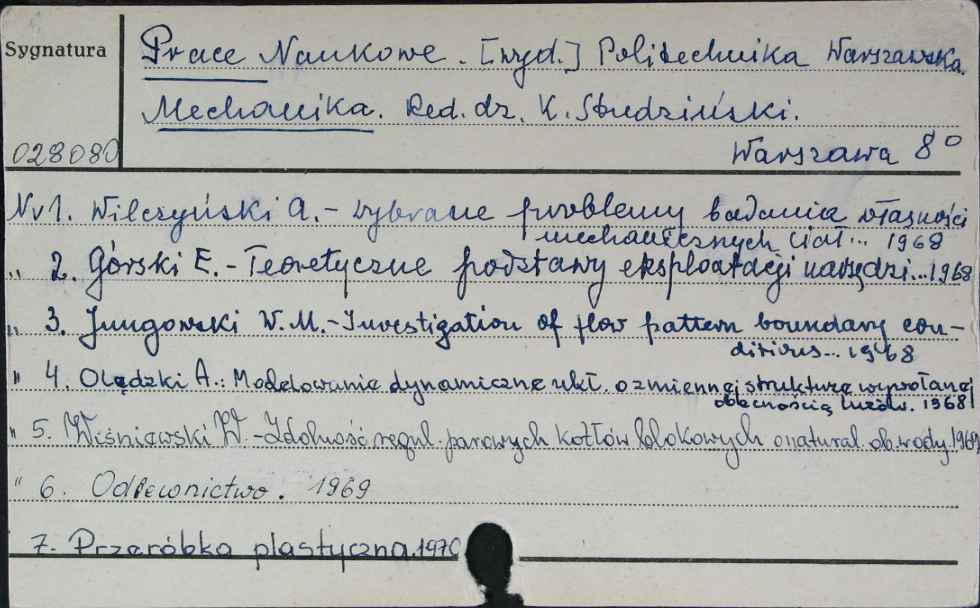 Sygnatura
Prace Naukowe. [wyd.] Politechnika Warszawska.
Mechanika. Red. dz. K. Studziński.
028080
Warszawa 8°
Nr 1. Wilczyński A. - Wybrane problemy badania własności
mechanicznych ciał... 1968
„ 2. Górski E. - Teoretyczne podstawy eksploatacji narzędzi...1968
„ 3. Jungowski W. M. - Investigation of flow pattern boundary con-
ditions... 1968
" 4. Olędzki A.: Modelowanie dynamiczne ukł. o zmiennej strukturze wywołanej
obecnością luzów. 1968
" 5. Wiśniewski W. - Zdolność regul. parowych kotłów blokowych o natural. ob. wody. 1969
" 6. Odlewnictwo. 1969
7. Przeróbka plastyczna. 1970